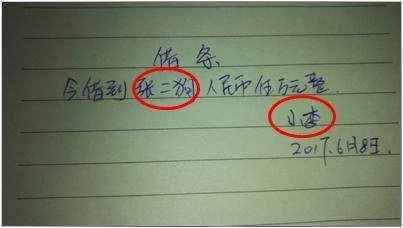 借条
今借到张二狗人民币伍万元整.
小李
2017.6月8日.